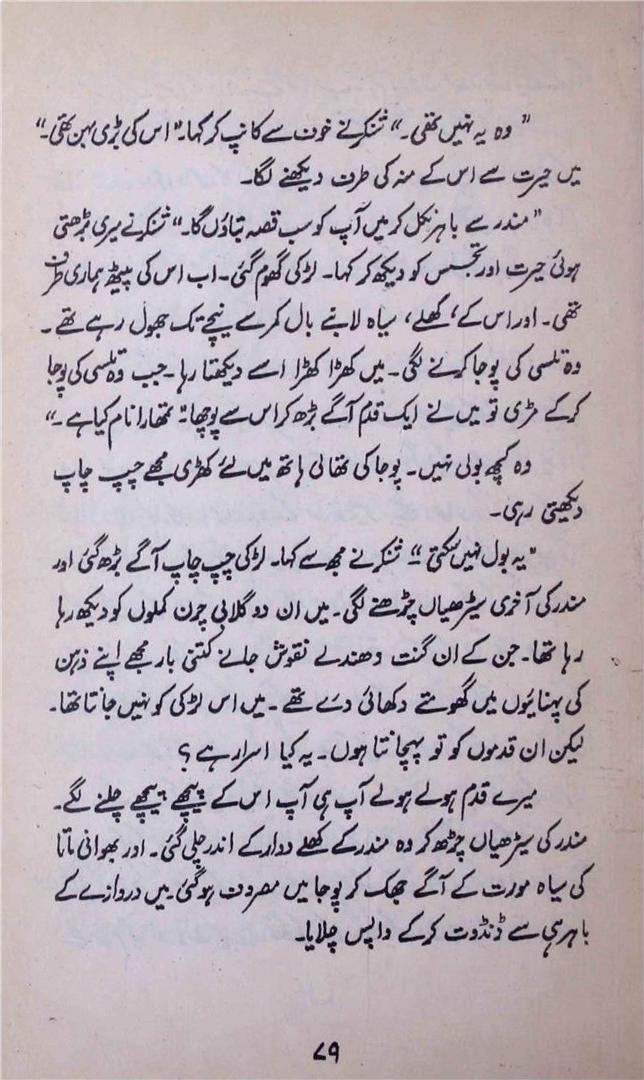 " وہ یہ نہیں تھی۔" شنکر نے خوف سے کانپ کر کہا۔" اس کی بڑی بہن تھی۔"
میں حیرت سے اس کے منہ کی طرف دیکھنے لگا۔
"مندر سے باہر نکل کر میں آپ کو سب قصہ بتاؤں گا۔" شنکر نے میری بڑھتی
ہوئی حیرت اور تجسس کو دیکھ کر کہا۔ لڑکی گھوم گئی۔ اب اس کی پیٹھ ہماری طرف
تھی۔ اور اس کے، کھلے، سیاہ لانبے بال کمر سے نیچے تک جھول رہے تھے۔
وہ تلسی کی پوجا کرنے لگی۔ میں کھڑا کھڑا اسے دیکھتا رہا۔ جب وہ تلسی کی پوجا
کر کے مڑی تو میں نے ایک قدم آگے بڑھ کر اس سے پوچھا۔" تمھارا نام کیا ہے۔"
وہ کچھ بولی نہیں۔ پوجا کی تھالی ہاتھ میں لئے کھڑی مجھے چپ چاپ
دیکھتی رہی۔
"یہ بول نہیں سکتی" شنکر نے مجھ سے کہا۔ لڑکی چپ چاپ آگے بڑھ گئی اور
مندر کی آخری سیڑھیاں چڑھنے لگی۔ میں ان دو گلابی چرن کملوں کو دیکھ رہا
رہا تھا۔ جن کے ان گنت دھندلے نقوش جانے کتنی بار مجھے اپنے ذہن
کی پہنائیوں میں گھومتے دکھائی دئے تھے۔ میں اس لڑکی کو نہیں جانتا تھا۔
لیکن ان قدموں کو تو پہچانتا ہوں۔ یہ کیا اسرار ہے؟
میرے قدم ہولے ہولے آپ ہی آپ اس کے پیچھے پیچھے چلنے لگے۔
مندر کی سیڑھیاں چڑھ کر وہ مندر کے کھلے دوار کے اندر چلی گئی۔ اور بھوانی ماتا
کی سیاہ مورت کے آگے جھک کر پوجا میں مصروف ہو گئی۔ میں دروازے کے
باہر ہی سے ڈنڈوت کر کے واپس چلا آیا۔
۷۹